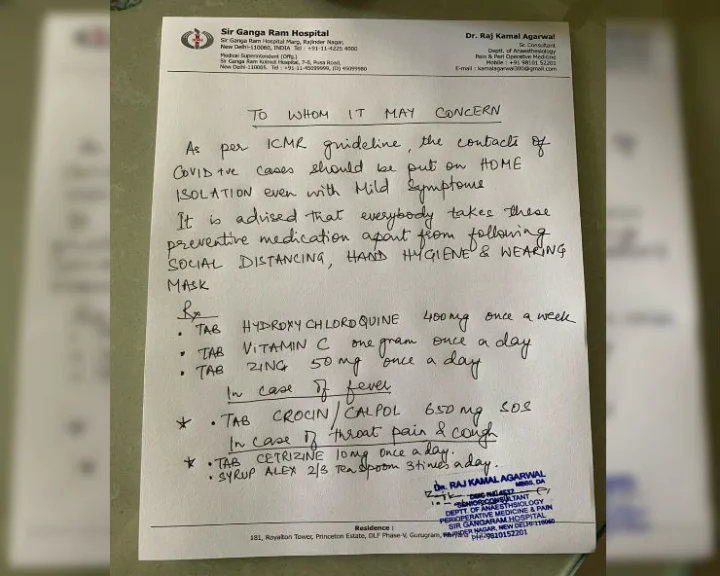 Sir Ganga Ram Hospital
Sir Ganga Ram Hospital Marg, Rajinder Nagar,
New Delhi-110060, INDIA Tel : +91-11-4225 4000
Medical Superintendent (Offg.)
Sir Ganga Ram Kolmet Hospital, 7-B, Pusa Road,
New Delhi-110005. Tel : +91-11-45099999, (D) 45099980
Dr. Raj Kamal Agarwal
Sr. Consultant
Deptt. of Anaesthesiology
Pain & Peri Operative Medicine
Mobile : +91 98101 52201
E-mail : kamalagarwal360@gmail.com
TO WHOM IT MAY CONCERN
As per ICMR guideline, the contacts of
COVID +ve cases should be put on HOME
ISOLATION even with Mild Symptoms
It is advised that everybody takes these
preventive medication apart from following
SOCIAL DISTANCING, HAND HYGIENE & WEARING
MASK
Rx
• TAB HYDROXY CHLOROQUINE 400mg once a week
• TAB VITAMIN C one gram once a day
• TAB ZINC 50 mg once a day
In case of fever
* • TAB CROCIN/CALPOL 650 mg SOS
In case of throat pain & cough
* • TAB CETRIZINE 10mg once a day.
• SYRUP ALEX 2/3 Tea Spoon 3 times a day.
Dr. RAJ KAMAL AGARWAL
MBBS, DA
SENIOR CONSULTANT
DEPTT. OF ANAESTHSIOLOGY
PERIOPERATIVE MEDICINE & PAIN
SIR GANGARAM HOSPITAL
RAJINDER NAGAR, NEW DELHI-110060
PH-9810152201
Residence :
181, Royalton Tower, Princeton Estate, DLF Phase-V, Gurugram,